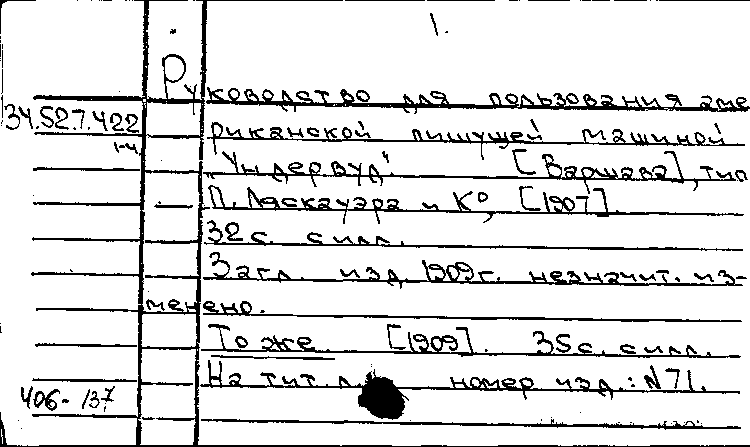 1.
Руководство для пользования аме
34.52.7.422 риканской пишущей машиной
1-4. "Ундервуд". [Варшава], тип
П. Ляскауэра и К°, [1907].
32 с. с илл.
Загл. изд. 1909 г. незначит. из-
менено.
То же [1909]. 35 с. с илл.
На тит. л. номер изд.: N 71.
406-137